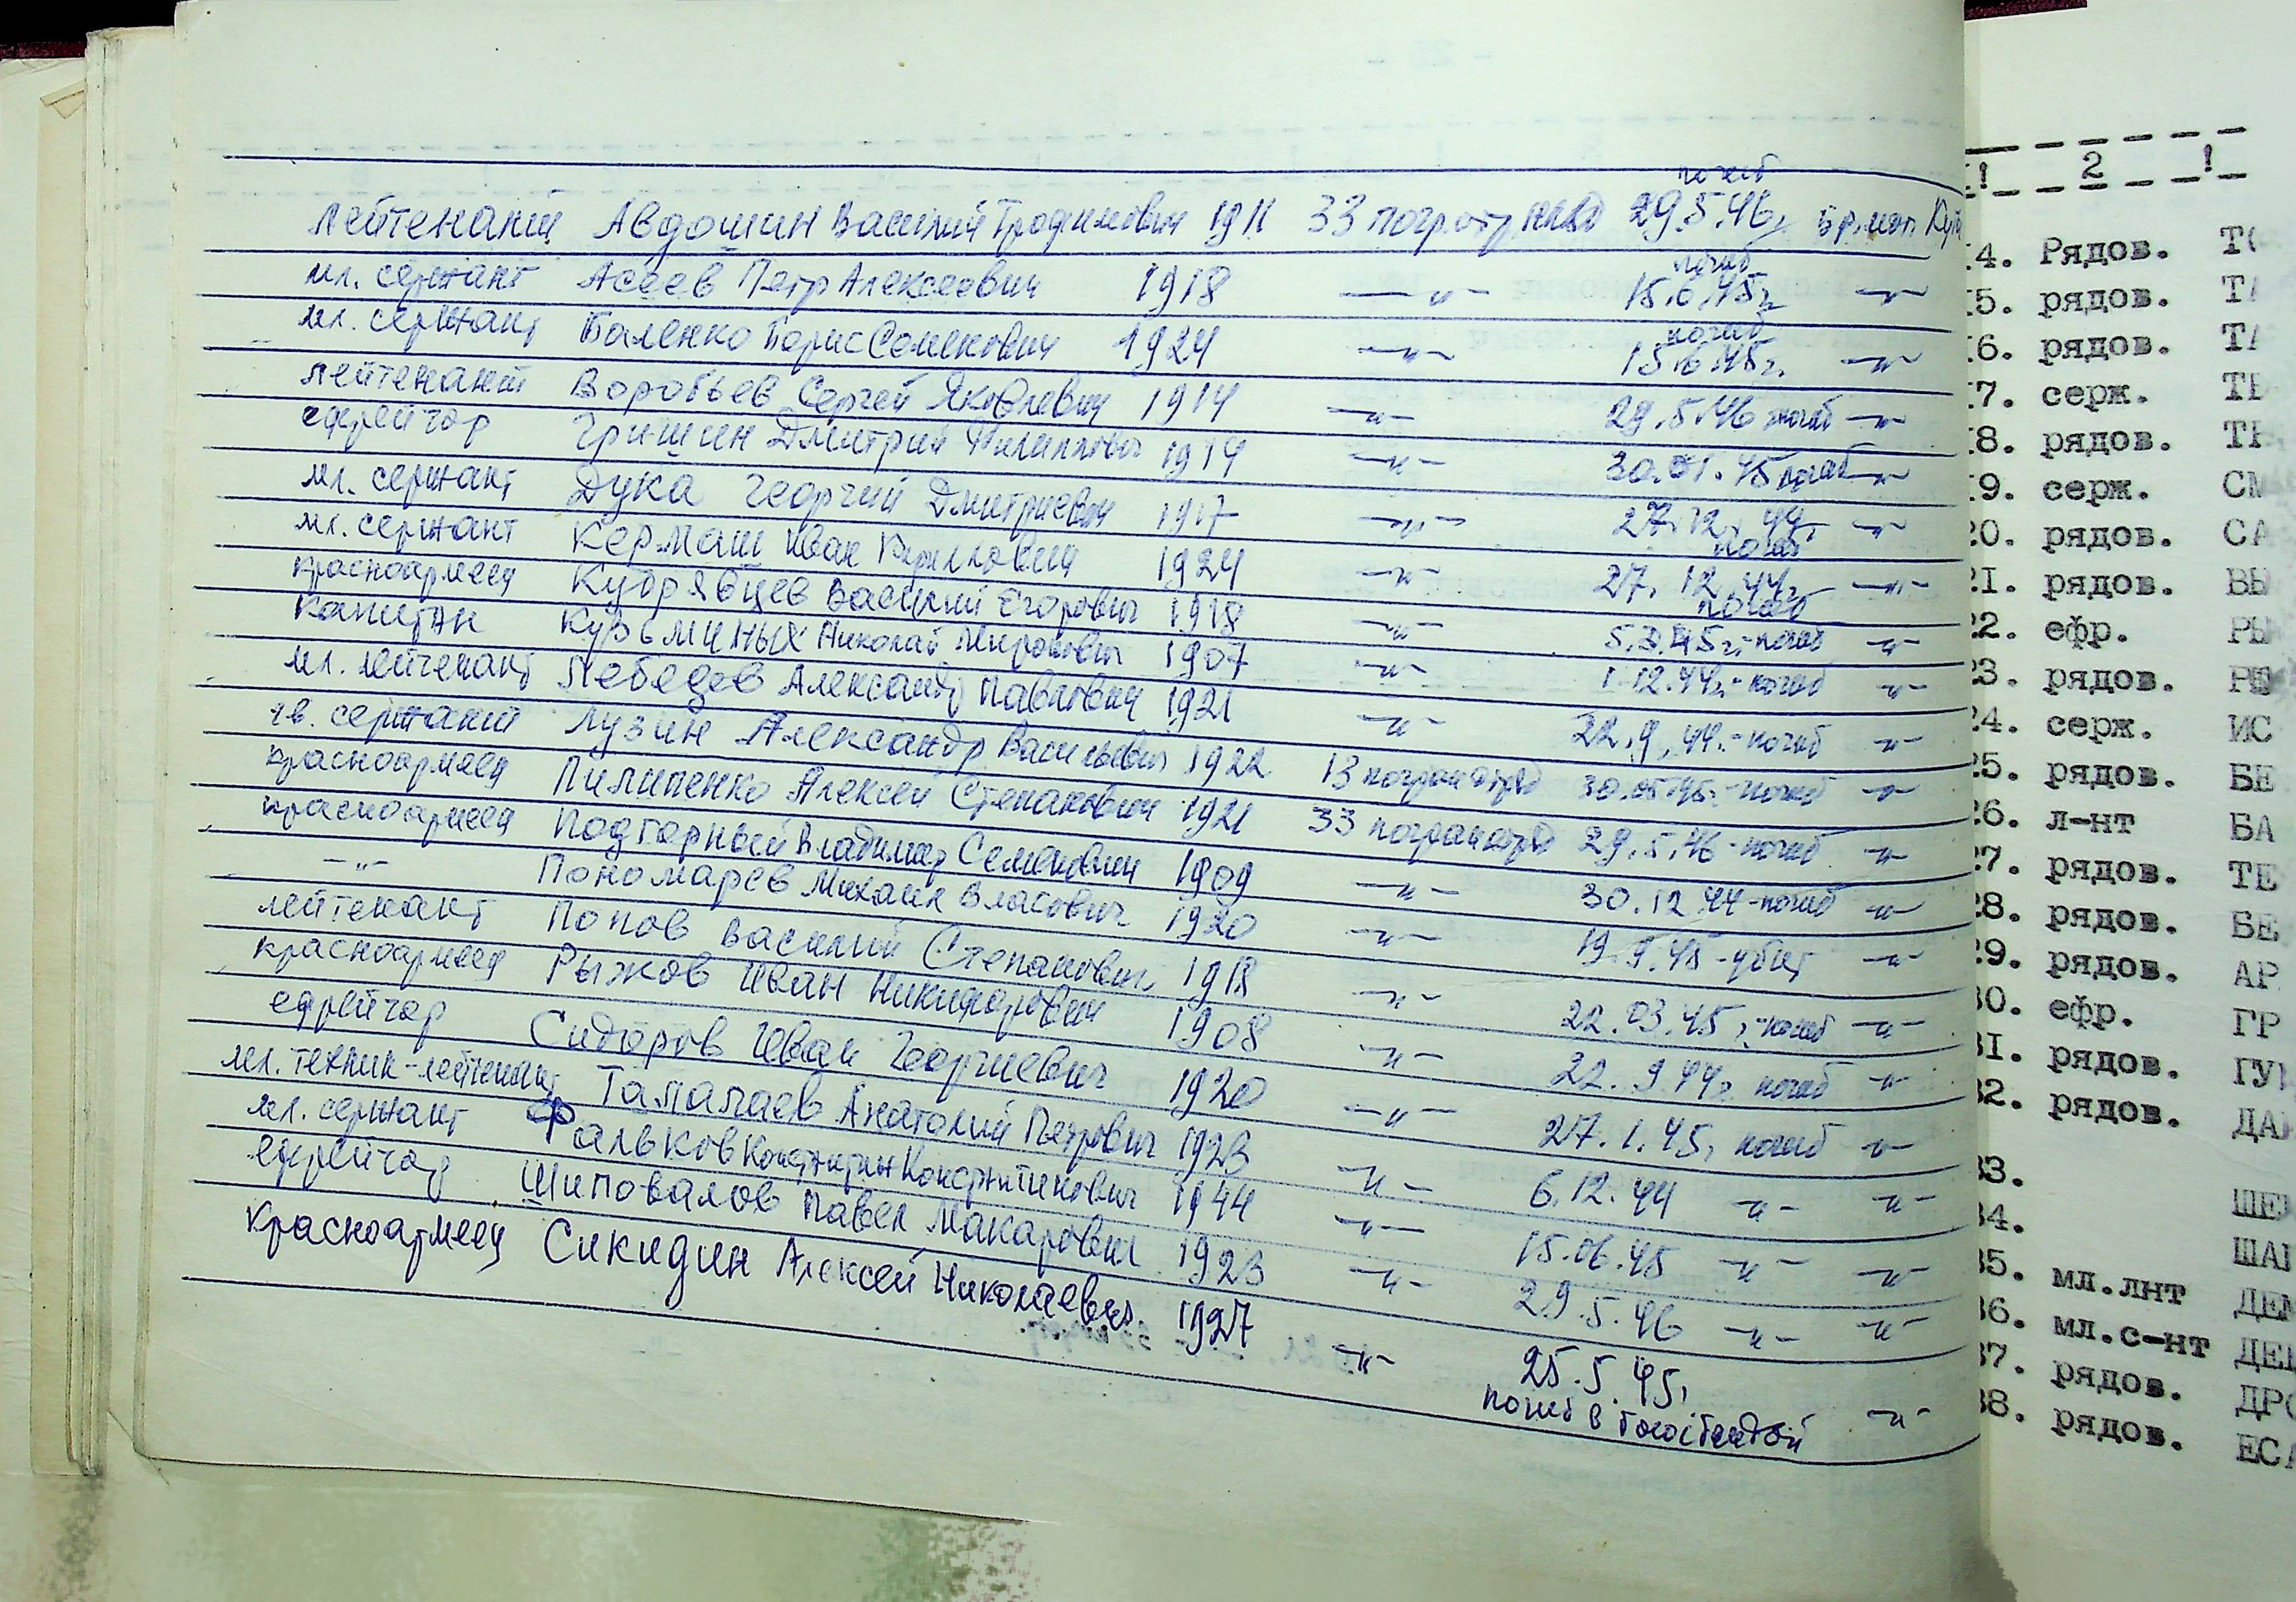 погиб
лейтенант Авдошин Василий Трофимович 1911 33 погр.отр нквд 29.5.46г. бр.мог.
мл. сержант Асеев Петр Алексеевич 1918 —"— погиб 15.6.45г —"—
мл. сержант Баленко Борис Семенович 1924 —"— погиб 15.6.45г. —"—
лейтенант Воробьев Сергей Яковлевич 1914 —"— 29.5.46 погиб —"—
ефрейтор Гришин Дмитрий Филиппович 1914 —"— 30.01.45 погиб —"—
мл. сержант Дука Георгий Дмитриевич 1917 —"— 27.12.44г. погиб —"—
мл. сержант Кермаш Иван Кириллович 1924 —"— 27.12.44г. погиб —"—
красноармеец Кудрявцев Василий Егорович 1918 —"— 5.3.45г.-погиб —"—
капитан Кузьминых Николай Миронович 1907 —"— 1.12.44г.-погиб —"—
мл. лейтенант Лебедев Александр Павлович 1921 —"— 22.9.44.-погиб —"—
гв. сержант Лузин Александр Васильевич 1922 13 погранотряд 30.05.45г.-погиб —"—
красноармеец Пилипенко Алексей Степанович 1921 33 погранотряд 29.5.46-погиб —"—
красноармеец Подгорный Владимир Семенович 1909 —"— 30.12.44-погиб —"—
—"— Пономарев Михаил Власович 1920 —"— 19.9.45-убит —"—
лейтенант Попов Василий Степанович 1918 —"— 22.03.45г.-погиб —"—
красноармеец Рыжов Иван Никифорович 1908 —"— 22.9.44г. погиб —"—
ефрейтор Сидоров Иван Георгиевич 1920 —"— 27.1.45г погиб —"—
мл. техник-лейтенант Тамалаев Анатолий Петрович 1923 —"— 6.12.44 —"— —"—
мл. сержант Фальков Константин Константинович 1944 —"— 15.06.45 —"— —"—
ефрейтор Шиповалов Павел Макарович 1923 —"— 29.5.46 —"— —"—
красноармеец Сикидин Алексей Николаевич 1927 —"— 25.5.45г —"—
погиб в
! 2 !
14. Рядов.
15. рядов.
16. рядов.
17. серж.
18. рядов.
19. серж.
20. рядов.
21. рядов.
22. ефр.
23. рядов.
24. серж.
25. рядов.
26. л-нт
27. рядов.
28. рядов.
29. рядов.
30. ефр.
31. рядов.
32. рядов.
33.
34.
35. мл.лнт
36. мл.с-нт
37. рядов.
38. рядов.